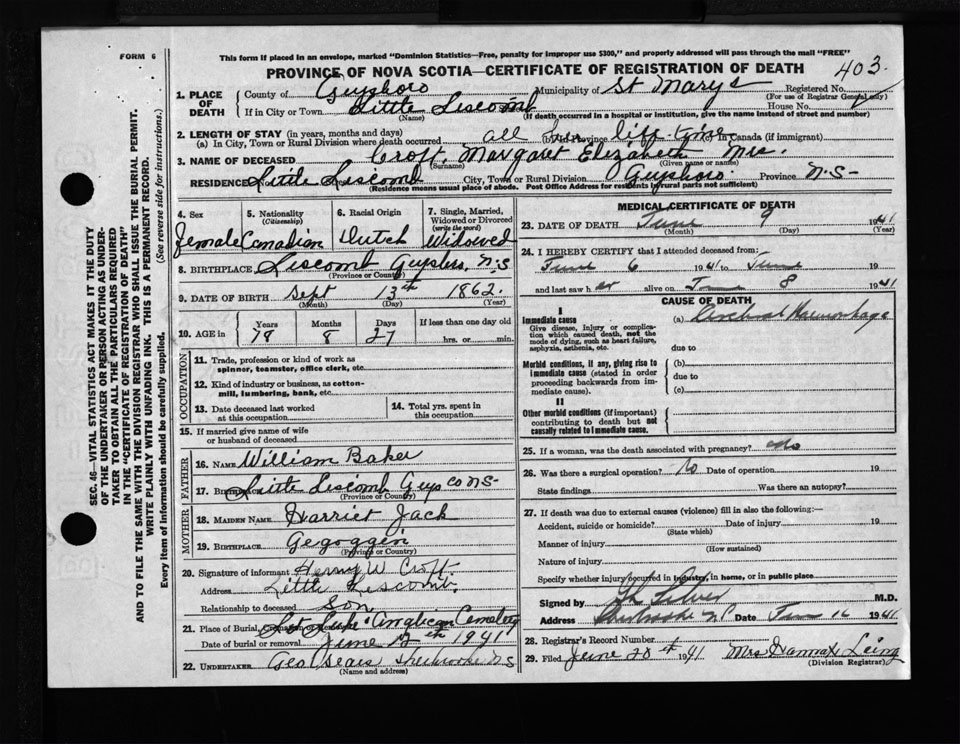 FORM 6
This form if placed in an envelope, marked "Dominion Statistics—Free, penalty for improper use $300," and properly addressed will pass through the mail "FREE"
PROVINCE OF NOVA SCOTIA—CERTIFICATE OF REGISTRATION OF DEATH 403
1. PLACE OF DEATH
County of Guysboro Municipality of St Marys Registered No.
(For use of Registrar General only)
If in City or Town Little Liscomb House No.
(Name) (If death occurred in a hospital or institution, give the name instead of street and number)
2. LENGTH OF STAY (in years, months and days)
(a) In City, Town or Rural Division where death occurred all her life time (c) in Canada (if immigrant)
3. NAME OF DECEASED Croft, Margaret Elizabeth Mrs.
(Surname) (Given name or names)
RESIDENCE Little Liscomb City, Town or Rural Division Guysboro Province N.S-
(Residence means usual place of abode. Post Office Address for residents in rural parts not sufficient)
4. Sex
female
5. Nationality
(Citizenship)
Canadian
6. Racial Origin
Dutch
7. Single, Married, Widowed or Divorced
(write the word)
Widowed
8. BIRTHPLACE Liscomb Guysboro, N.S
(Province or Country)
9. DATE OF BIRTH Sept 13th 1862
(Month) (Day) (Year)
10. AGE in
Years 78
Months 8
Days 27
If less than one day old
hrs. or min.
OCCUPATION
11. Trade, profession or kind of work as spinner, teamster, office clerk, etc.
12. Kind of industry or business, as cotton-mill, lumbering, bank, etc.
13. Date deceased last worked at this occupation
14. Total yrs. spent in this occupation
15. If married give name of wife or husband of deceased
FATHER
16. NAME William Baker
17. Birthplace Little Liscomb Guys co NS-
(Province or Country)
MOTHER
18. MAIDEN NAME Harriet Jack
19. BIRTHPLACE Gegoggin
(Province or Country)
20. Signature of informant Henry W Croft
Address Little Liscomb.
Relationship to deceased Son
21. Place of Burial, Anglican Cemetery
Date of burial or removal June 12th 1941
22. UNDERTAKER Geo Sears Sherbrooke N.S
(Name and address)
MEDICAL CERTIFICATE OF DEATH
23. DATE OF DEATH June 9 1941
(Month) (Day) (Year)
24. I HEREBY CERTIFY that I attended deceased from:
June 6 1941 to June 19
and last saw her alive on June 8 1941
CAUSE OF DEATH
I
Immediate cause
Give disease, injury or complication which caused death, not the mode of dying, such as heart failure, asphyxia, asthenia, etc.
(a) Cerebral Haemorrhage
due to
Morbid conditions, if any, giving rise to immediate cause (stated in order proceeding backwards from immediate cause).
(b)
due to
(c)
II
Other morbid conditions (if important) contributing to death but not causally related to immediate cause.
25. If a woman, was the death associated with pregnancy? no
26. Was there a surgical operation? No Date of operation 19
State findings Was there an autopsy?
27. If death was due to external causes (violence) fill in also the following:—
Accident, suicide or homicide? Date of injury 19
(State which)
Manner of injury
(How sustained)
Nature of injury
Specify whether injury occurred in industry, in home, or in public place
Signed by M.D.
Address Sherbrooke Date June 16 1941
28. Registrar's Record Number
29. Filed June 20th 1941 Mrs Hannah Laing
(Division Registrar)
SEC. 46—VITAL STATISTICS ACT MAKES IT THE DUTY
OF THE UNDERTAKER OR PERSON ACTING AS UNDERTAKER
TO OBTAIN ALL THE PARTICULARS REQUIRED
IN THE "CERTIFICATE OF REGISTRATION OF DEATH"
AND TO FILE THE SAME WITH THE DIVISION REGISTRAR WHO SHALL ISSUE THE BURIAL PERMIT.
WRITE PLAINLY WITH UNFADING INK. THIS IS A PERMANENT RECORD.
Every item of information should be carefully supplied. (See reverse side for instructions.)